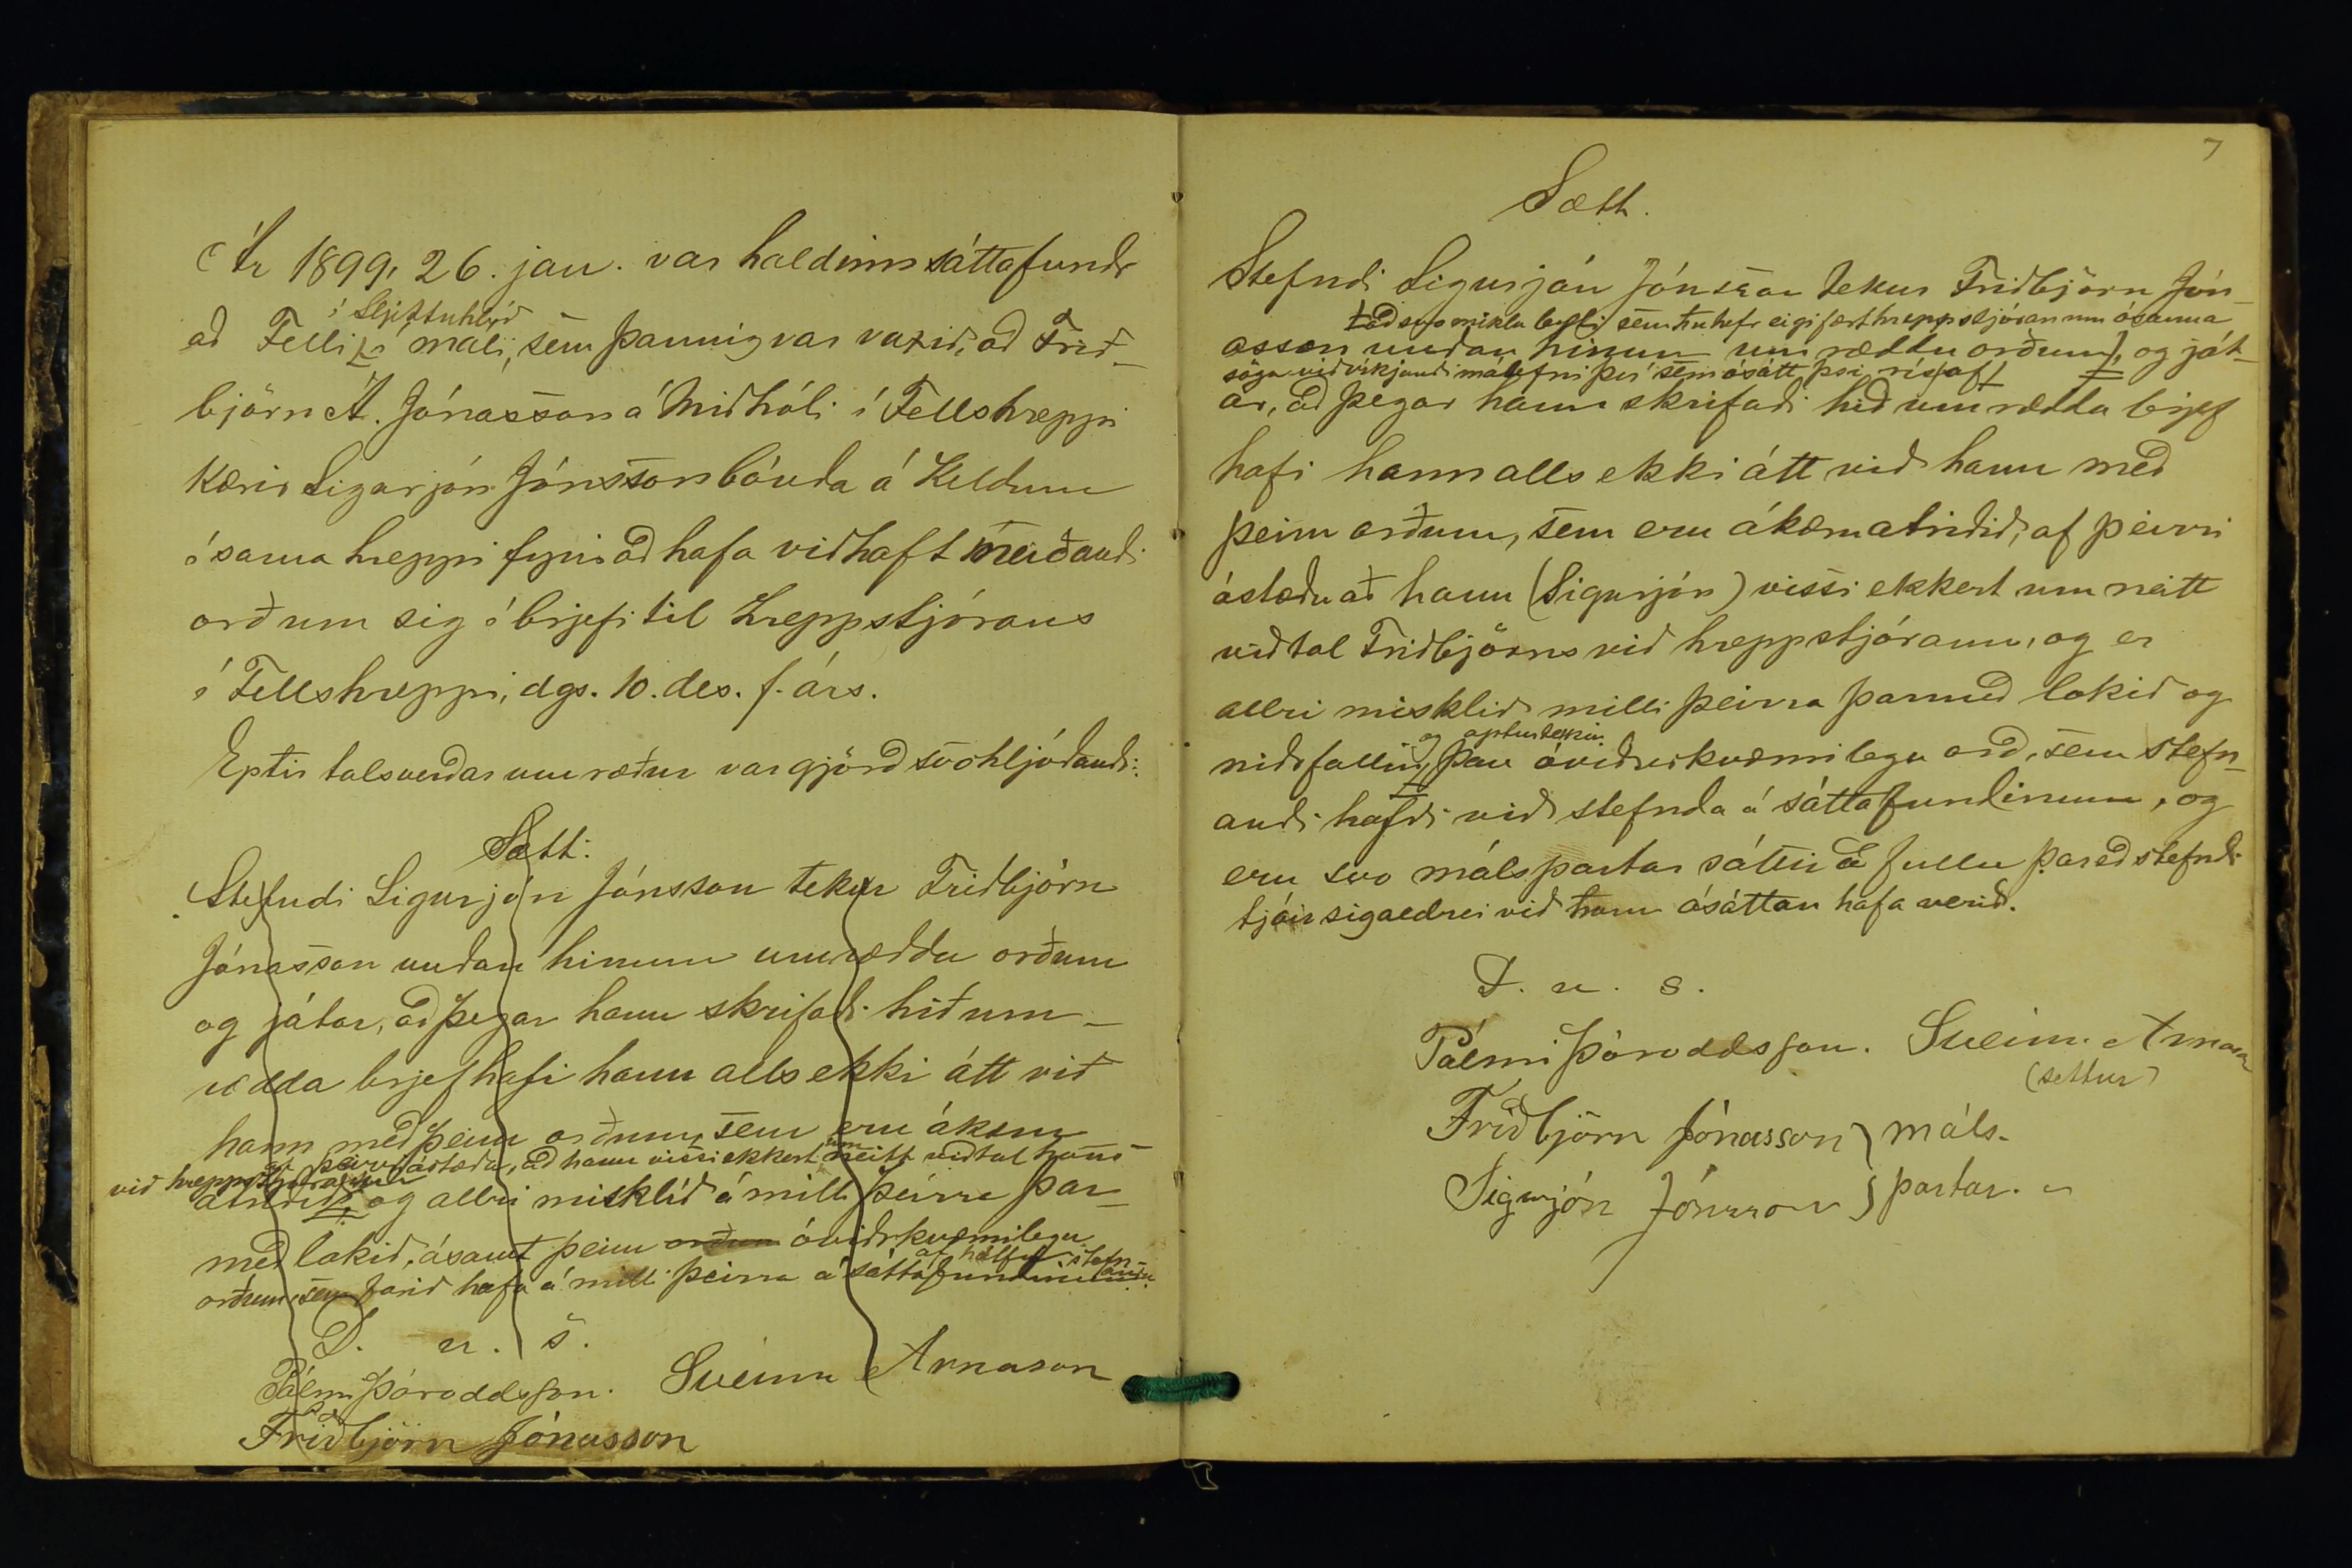 Ár 1899, 26. jan. var haldinn sáttafundr
í Sljettuhlíð
að Felli í máli, sem þannig var varið, að Frið-
björn Á. Jónasson á Miðhóli í Fellshreppi
kærir Sigurjón Jónsson bónda á Keldum
í sama hreppi fyrir að hafa viðhaft meiðandi
orð um sig í brjefi til hreppstjórans
í Fellshreppi, dgs. 10. des. f. árs.
Eptir talsverðar umræður var gjörð svohljóðandi:
Sætt:
Stefndi Sigurjón Jónsson tekur Friðbjörn
Jónasson undan hinum umræddu orðum
og játar, að þegar hann skrifaði hið um-
rædda brjef hafi hann alls ekki átt við
hann með þeim orðum, sem eru ákæru
af þeirri ástæðu, að hann vissi ekkert um neitt viðtal hans
við hreppstjórann
atriðið, og allri misklíð á milli þeirra þar-
með lokið, ásamt þeim orðum óviðrkvæmilegu
af hálfu stefn-
anda
orðum, sem farið hafa á milli þeirra á sáttafundinum.
D. u. s.
Pálmi Þóroddsson. Sveinn Arnason
Friðbjörn Jónasson
7
Sætt.
Stefndi Sigurjón Jónsson tekur Friðbjörn Jón-
að svo miklu leyti sem hefr eigi fært hreppstjóranum ósanna
asson undan hinum umræddu orðum), og ját-
sögu viðvíkjandi málefni því sem ósátt þsi rís af
ar, að þegar hann skrifaði hið umrædda brjef
hafi hann alls ekki átt við hann með
þeim orðum, sem eru ákæruatriðið, af þeirri
ástæðu að hann (Sigurjón) vissi ekkert um neitt
viðtal Friðbjörns við hreppstjórann, og er
allri misklíð milli þeirra þarmeð lokið og
og apturtekin
niðrfallin, þau óviðrkvæmilegu orð, sem stefn-
andi hafði við stefnda á sáttafundinum, og
eru svo málspartar sáttir að fullu þareð stefndi
tjáir sig aldrei við hann ósáttan hafa verið.
D. u. s.
Pálmi Þóroddsson. Sveinn Arnason
(settur)
Friðbjörn Jónasson } máls-
Sigurjón Jónsson } partar.